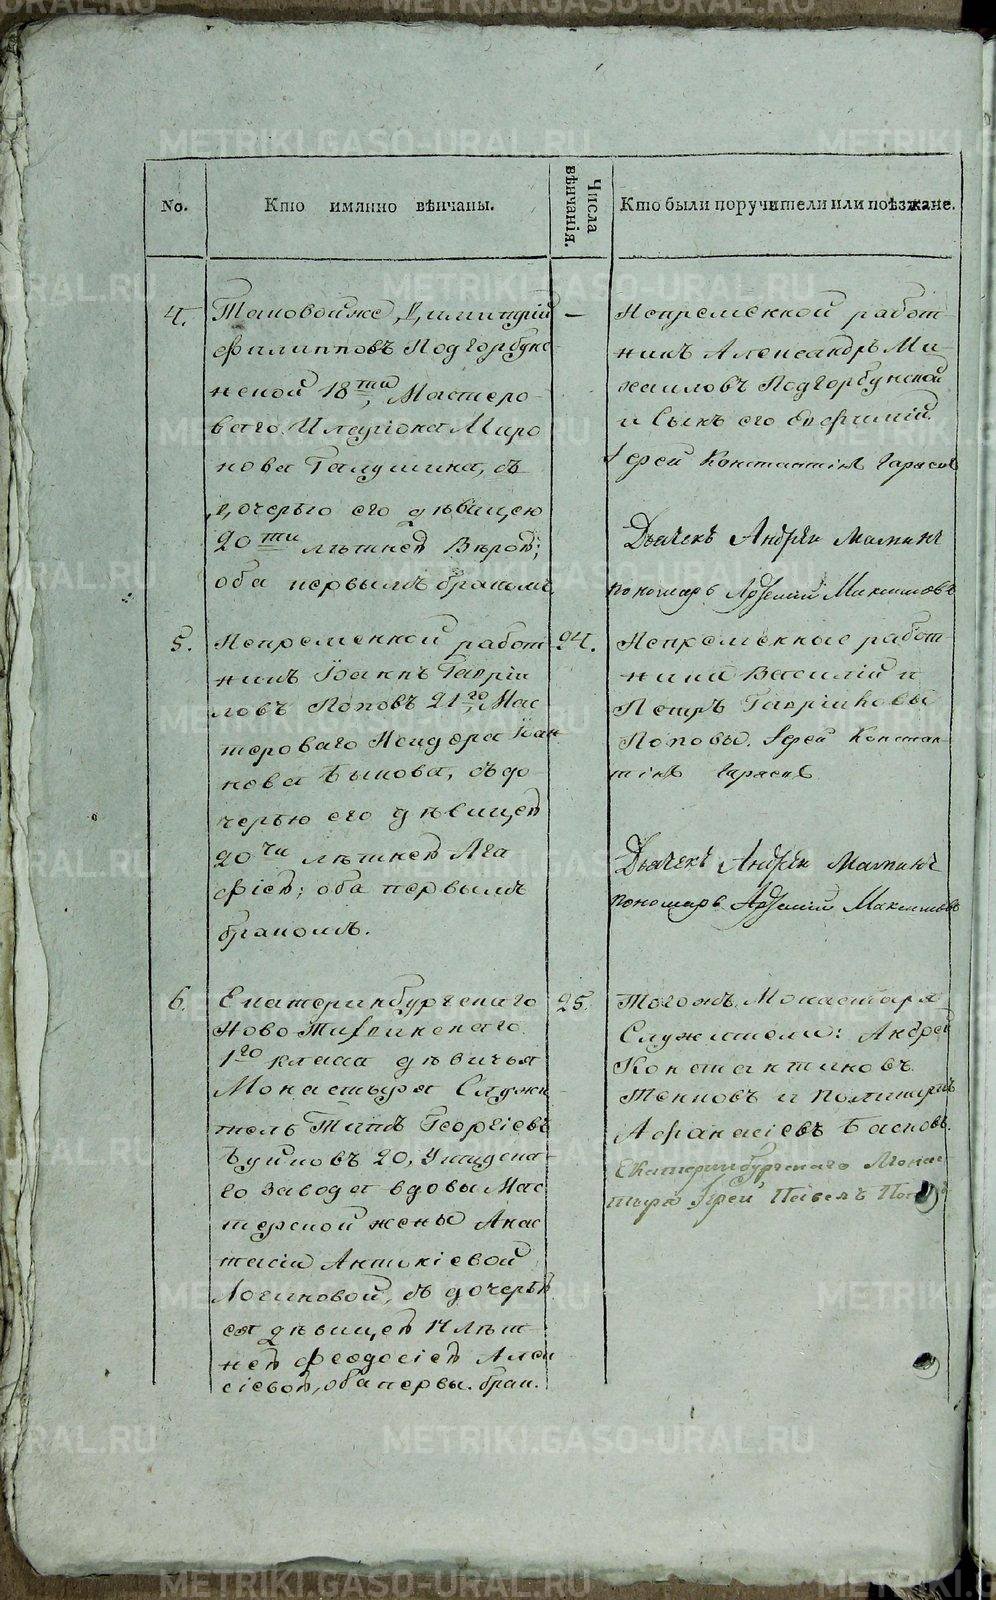 No.
Кто имянно вѣнчаны.
Числа вѣнчанія.
Кто были поручители или поѣзжане.
4.
Таковой же Димитрій
Филипповъ Подгорбунс-
нской 18ти, Мастеро-
ваго Иларіона Миро
нова Галушина, съ
дочерью его дѣвицею
20ти лѣтней Вѣрой;
оба первымъ бракомъ.
—
Непременной работ-
никъ Александръ Ми-
хаиловъ Подгорбунской
и Сынъ его Евфимій.
Іерей Константинъ
Дьячекъ Андрей Маминъ
пономарь Арсеній Максимовъ
5.
Непременной работ
никъ Іоаннъ Гаврии
ловъ Поповъ 21го, Мас
тероваго Исидора Иван
нова Быкова, съ до-
черью его дѣвицей
20ти лѣтней Ага
фіей; оба первымъ
бракомъ.
24.
Непременные работ-
ники Василій и
Петръ Гавриловы
Поповы. Іерей Констан-
тинъ
Дьячекъ Андрей Маминъ
пономарь Арсеній Максимовъ
6.
Екатеринбургскаго
Ново Тихвинскаго
1го класса дѣвичья
Монастыря Служи-
тель Титъ Георгіевъ
Буйновъ 20, Уктускa-
го завода вдовы Мас
терской жены Анас
тасіи
Логиновой, съ дочерью
ея дѣвицей 17 лѣт-
ней Феодосіей Алек
сіевой, оба первы. брак.
25.
Тогожъ Монастыря
Служители: Андрей
Константиновъ
и
Афанасіевъ Басковъ.
Екатеринбургскаго Монас-
тыря Іерей Павелъ
METRIKI.GASO-URAL.RU